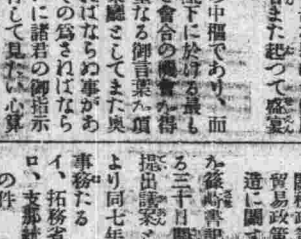 また起つて盛宴
の中樞であり、而
下に於ける最も
會合の機會を得
重なる御言葉を頂
廳としてまた奥
ねばならぬ事があ
その爲さねばなら
に諸君の御指示
して見たい心算
貿易政策
造に關す
篠崎書記
る三十日間
提出議案
より同七年
事務たる
イ、拓務省
ロ、支那
の件